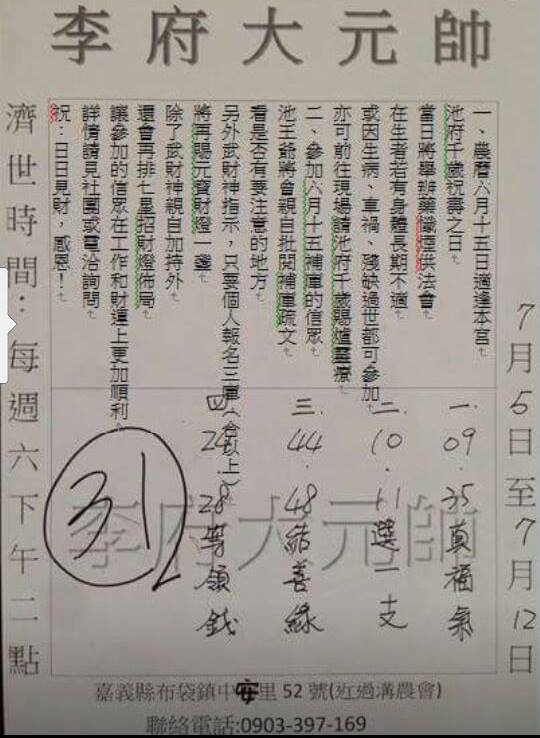 李府大元帥
7月5日至7月12日
一、農曆六月十五日適逢本宮
池府千歲祝壽之日
當日將舉辦藥懺煙供法會
在生者若有身體長期不適
或因生病、車禍、殘缺過世都可參加
亦可前往現場請池府千歲賜爐靈療
二、參加六月十五補庫的信眾
池王爺將會親自批閱補庫疏文
看是否有要注意的地方
另外武財神指示，只要個人報名三庫(含以上)
將再賜元寶財燈一盞
除了武財神親自加持外
還會再排七星招財燈佈局
讓參加的信眾在工作和財運上更加順利
詳情請見社團或電洽詢問
祝：日日見財，感恩！
一.09.35真福氣
二.10.11選一支
三.44.48結善緣
四.24.28等領錢
31
李府大元帥
濟世時間：每週六下午二點
嘉義縣布袋鎮中安里52號(近過溝農會)
聯絡電話:0903-397-169